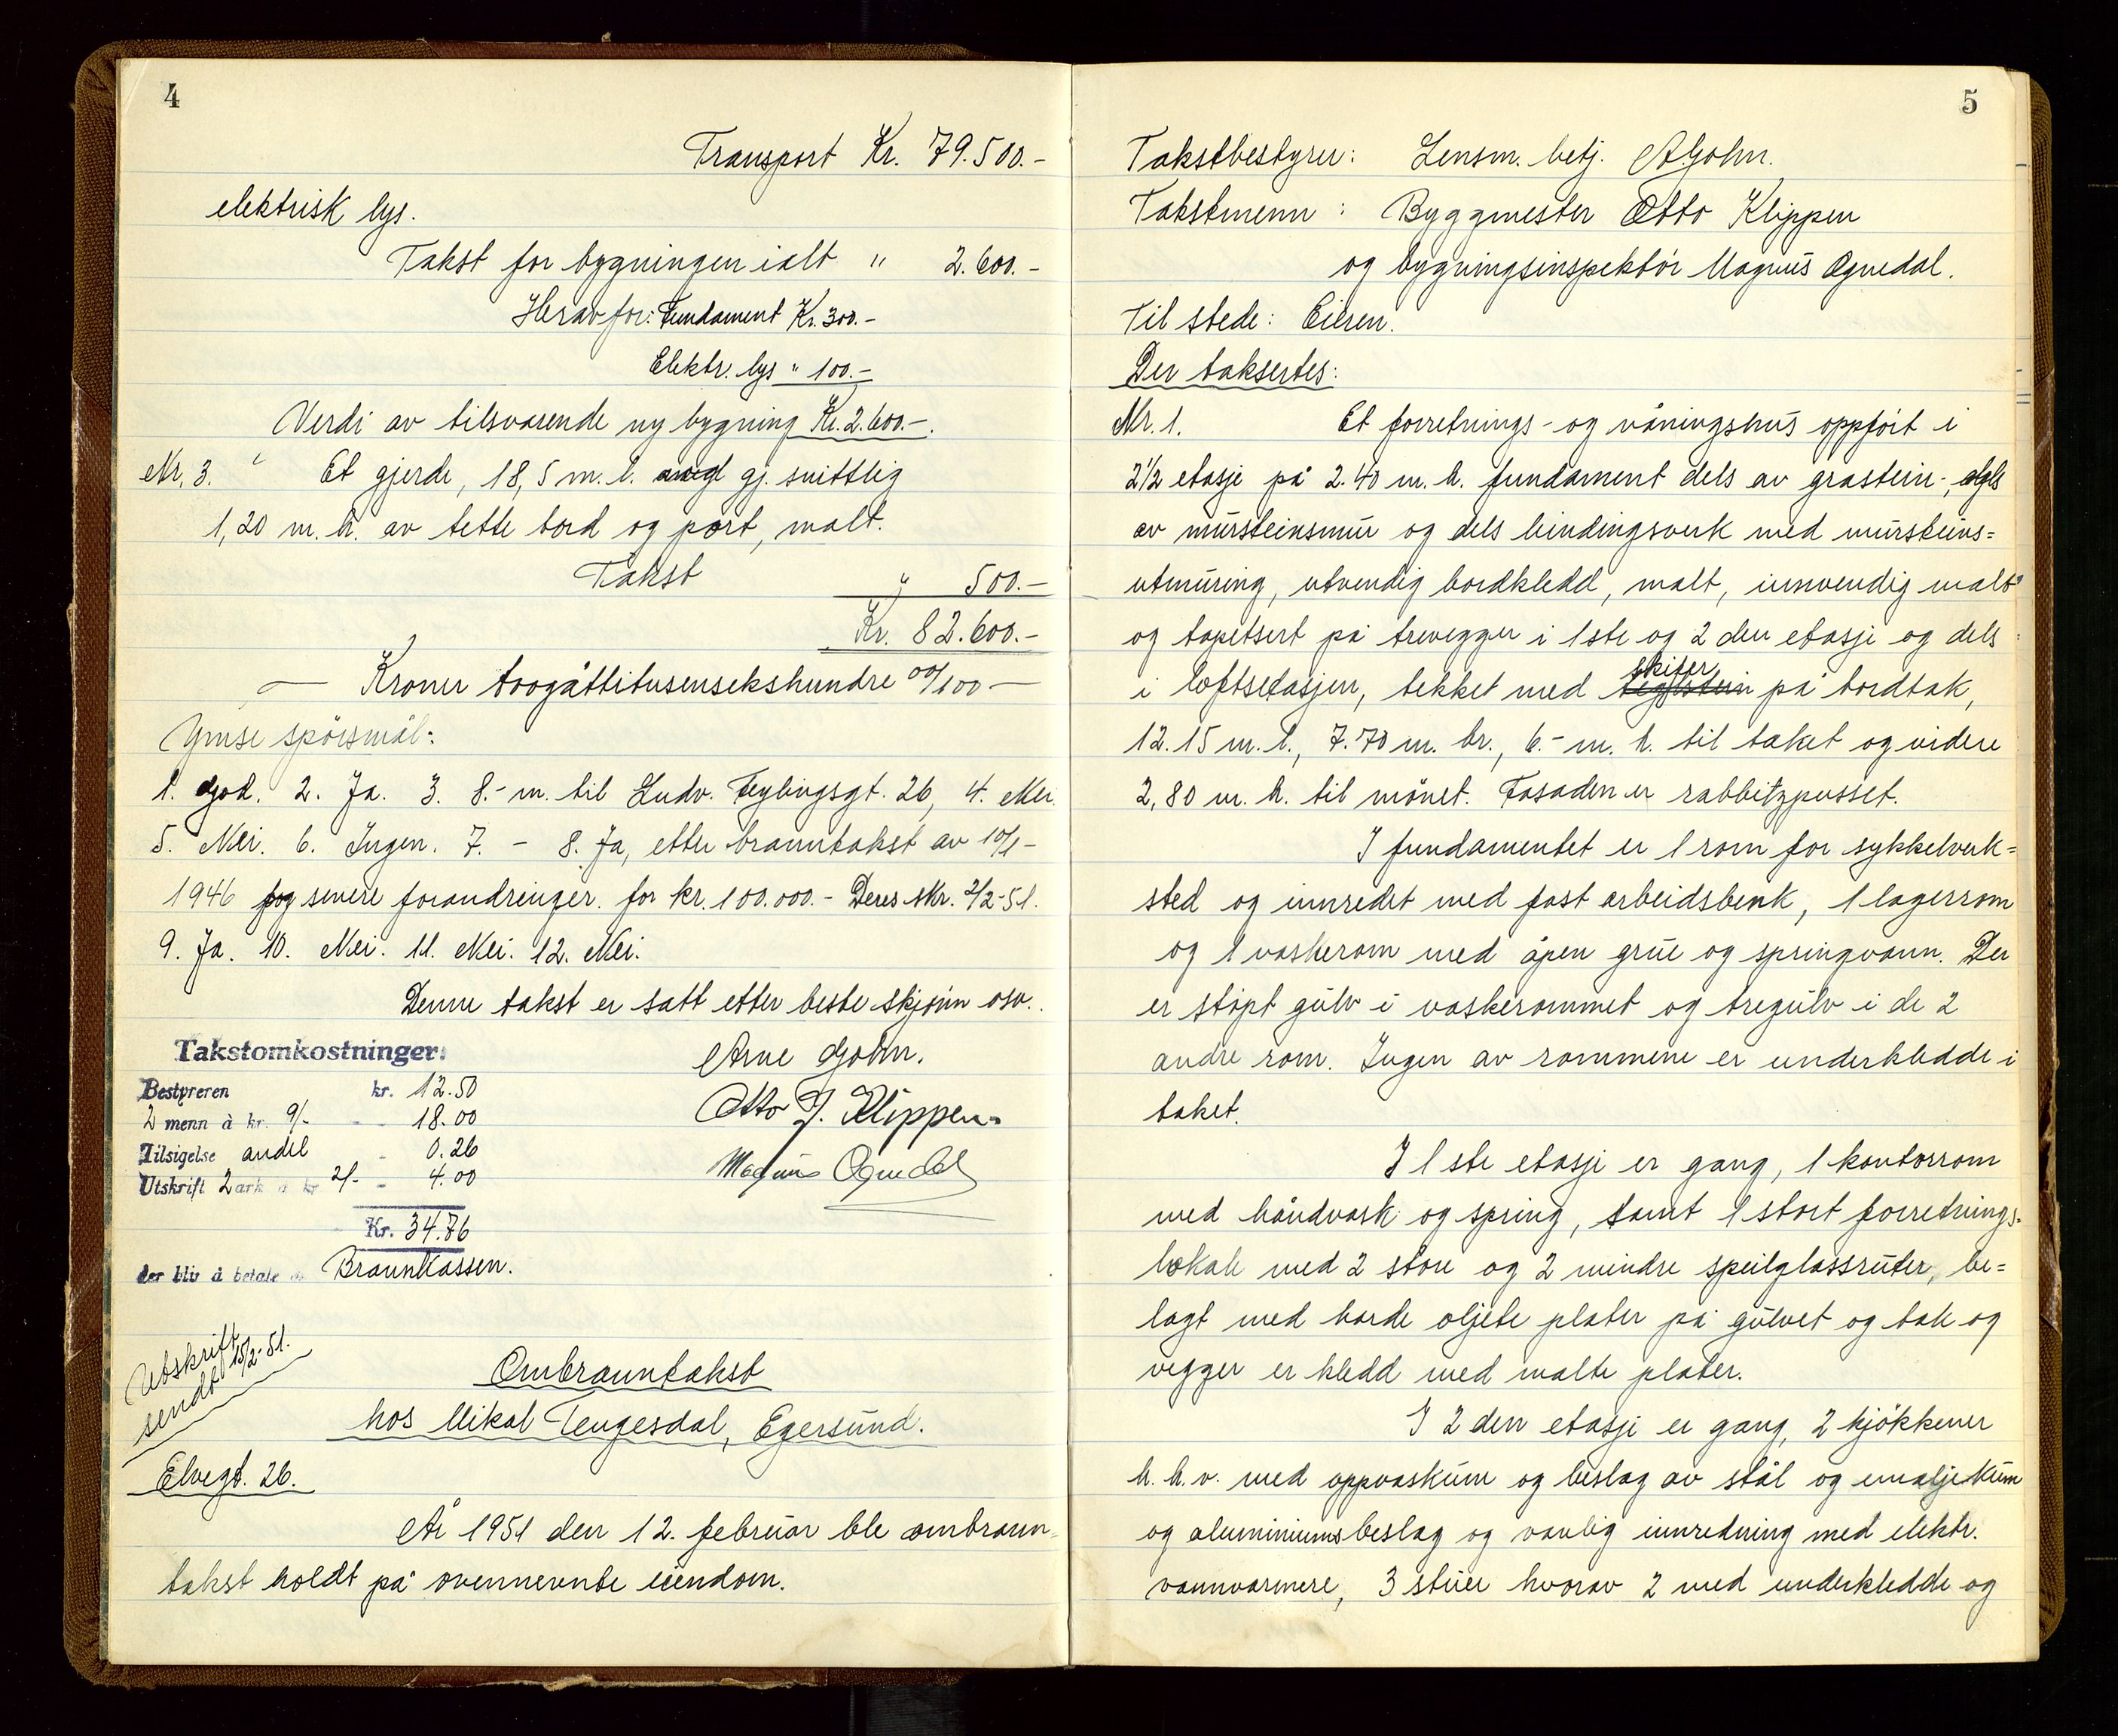 4
Transport Kr. 79.500.-
elektrisk lys.
Takst for bygningen ialt " 2.600.-
Herav for: Fundament Kr. 300.-
Elektr. lys " 100.-
Verdi av tilsvarende ny bygning Kr. 2.600.-.
Nr. 3. Et gjerde, 18,5 m. l. gj. snittlig
1,20 m. h. av tette bord og port, malt.
Takst " 500.-
Kr. 82.600.-
— Kroner toogåttitusensekshundre 00/100 —
Ymse spörsmål:
1. God. 2. Ja. 3. 8.- m. til Ludv. Feylingsgt. 26, 4. Nei.
5. Nei. 6. Ingen. 7. - 8. Ja, etter branntakst av 10/1-
1946 og senere forandringer for kr. 100.000.- Deres skr. 2/2-51.
9. Ja. 10. Nei. 11. Nei. 12. Nei.
Denne takst er satt etter beste skjönn osv..
Takstomkostninger:
Bestyreren kr. 12.50
2 menn à kr. 9/- - - 18.00
Tilsigelse andel - 0.26
Utskrift 2 ark à kr 2/- - 4.00
Kr. 34.76
der bliv å betale av Brannkassen.
Arne Gohn.
Otto J. Klippen.
Magnus Ognedal
Utskrift
sendt 15/2-51.
Ombranntakst
hos Mikal Tengesdal, Egersund.
Elvegt. 26.
År 1951 den 12. februar ble ombrann-
takst holdt på ovennevnte eiendom.
5
Takstbestyrer: Lensm. betj. A Gohn.
Takstmenn : Byggmester Otto Klippen
og bygningsinspektör Magnus Ognedal.
Til stede: Eieren.
Der taksertes:
Nr. 1. Et forretnings- og våningshus oppfört i
2 1/2 etasje på 2.40 m. h. fundament dels av gråstein-, dels
av mursteinsmur og dels bindingsverk med mursteins=
utmuring, utvendig bordkledd, malt, innvendig malt
og tapetsert på trevegger i 1ste og 2 den etasje og dels
i loftsetasjen, tekket med teglstein skifer på bordtak,
12.15 m. l., 7.70 m. br., 6.- m. h. til taket og videre
2,80 m. h. til mönet. Fasaden er rabbitzpusset.
I fundamentet er 1 rom for sykkelverk=
sted og innredet med fast arbeidsbenk, 1 lagerrom
og 1 vaskerom med åpen grue og springvann. Der
er stöpt gulv i vaskerommet og tregulv i de 2
andre rom. Ingen av rommene er underkledde i
taket.
I 1 ste etasje er gang, 1 kontorrom
med håndvask og spring, samt 1 stort forretnings-
lokale med 2 store og 2 mindre speilglassruter, be=
lagt med harde oljete plater på gulvet og tak og
vegger er kledd med malte plater.
I 2 den etasje er gang, 2 kjökkener
h. h. v. med oppvaskum og beslag av stål og emaljekum
og aluminiumsbeslag og vanlig innredning med elektr.
vannvarmere, 3 stuer hvorav 2 med underkledde og